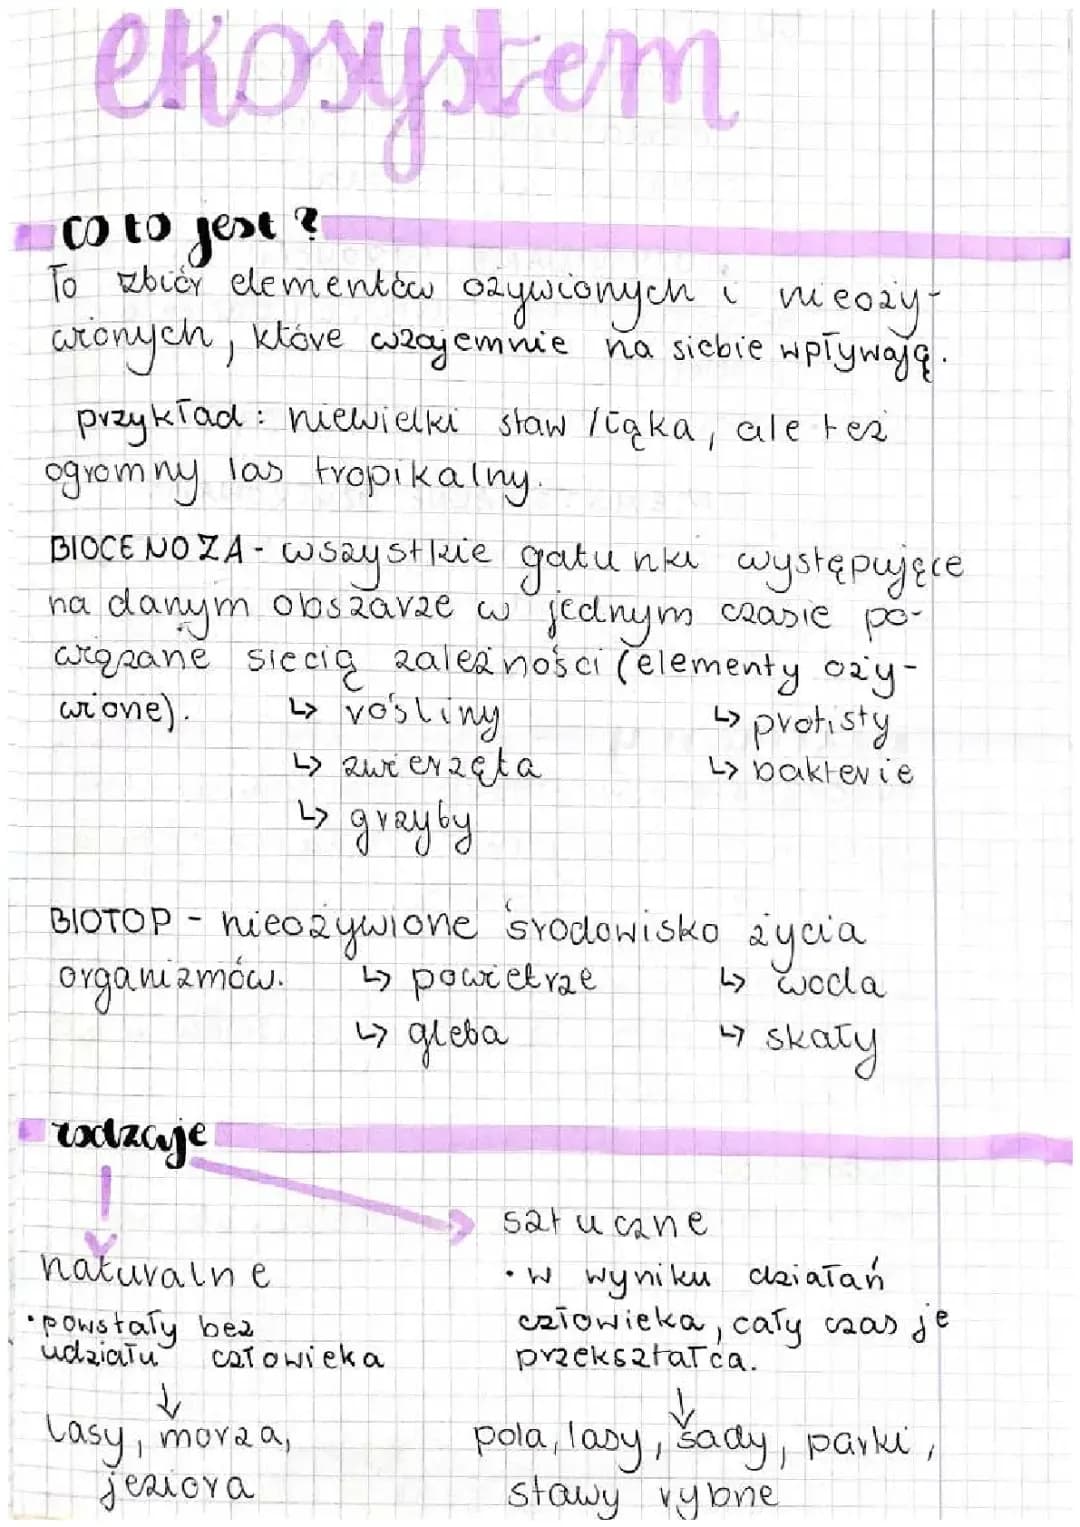 ekosystem
co to jest?
To zbiór elementów ożywionych i nieoży-
wionych, które wzajemnie na siebie wpływają.
przykład: niewielki staw / łąka, ale też
ogromny las tropikalny.
BIOCENOZA - wszystkie gatunki występujące
na danym obszarze w jednym czasie po-
wiązane siecią zależności (elementy oży-
wione). ↳ rośliny ↳ protisty
↳ zwierzęta ↳ bakterie
↳ grzyby
BIOTOP - nieożywione środowisko życia
organizmów. ↳ powietrze ↳ woda
↳ gleba ↳ skały
rodzaje
sztuczne
naturalne
• w wyniku działań
człowieka, cały czas je
przekształca.
• powstały bez
udziału człowieka
↓ ↓
lasy, morza,
jeziora
pola, lasy, sady, parki,
stawy rybne